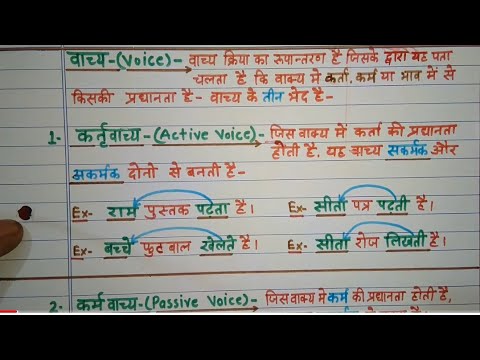 वाच्य-(Voice)- वाच्य क्रिया का रूपान्तरण है जिसके द्वारा यह पता
चलता है कि वाक्य मे कर्ता, कर्म या भाव में से
किसकी प्रधानता है- वाच्य के तीन भेद है-
1- कर्तृवाच्य-(Active Voice)- जिस वाक्य में कर्ता की प्रधानता
होती है. यह वाच्य सकर्मक और
अकर्मक दोनो से बनती है-
Ex- राम पुस्तक पढता है। Ex- सीता पत्र पढती है।
Ex- बच्चे फुटबाल खेलते है। Ex- सीता रोज लिखती है।
2- कर्म वाच्य-(Passive Voice)- जिस वाक्य मे कर्म की प्रधानता होती है,